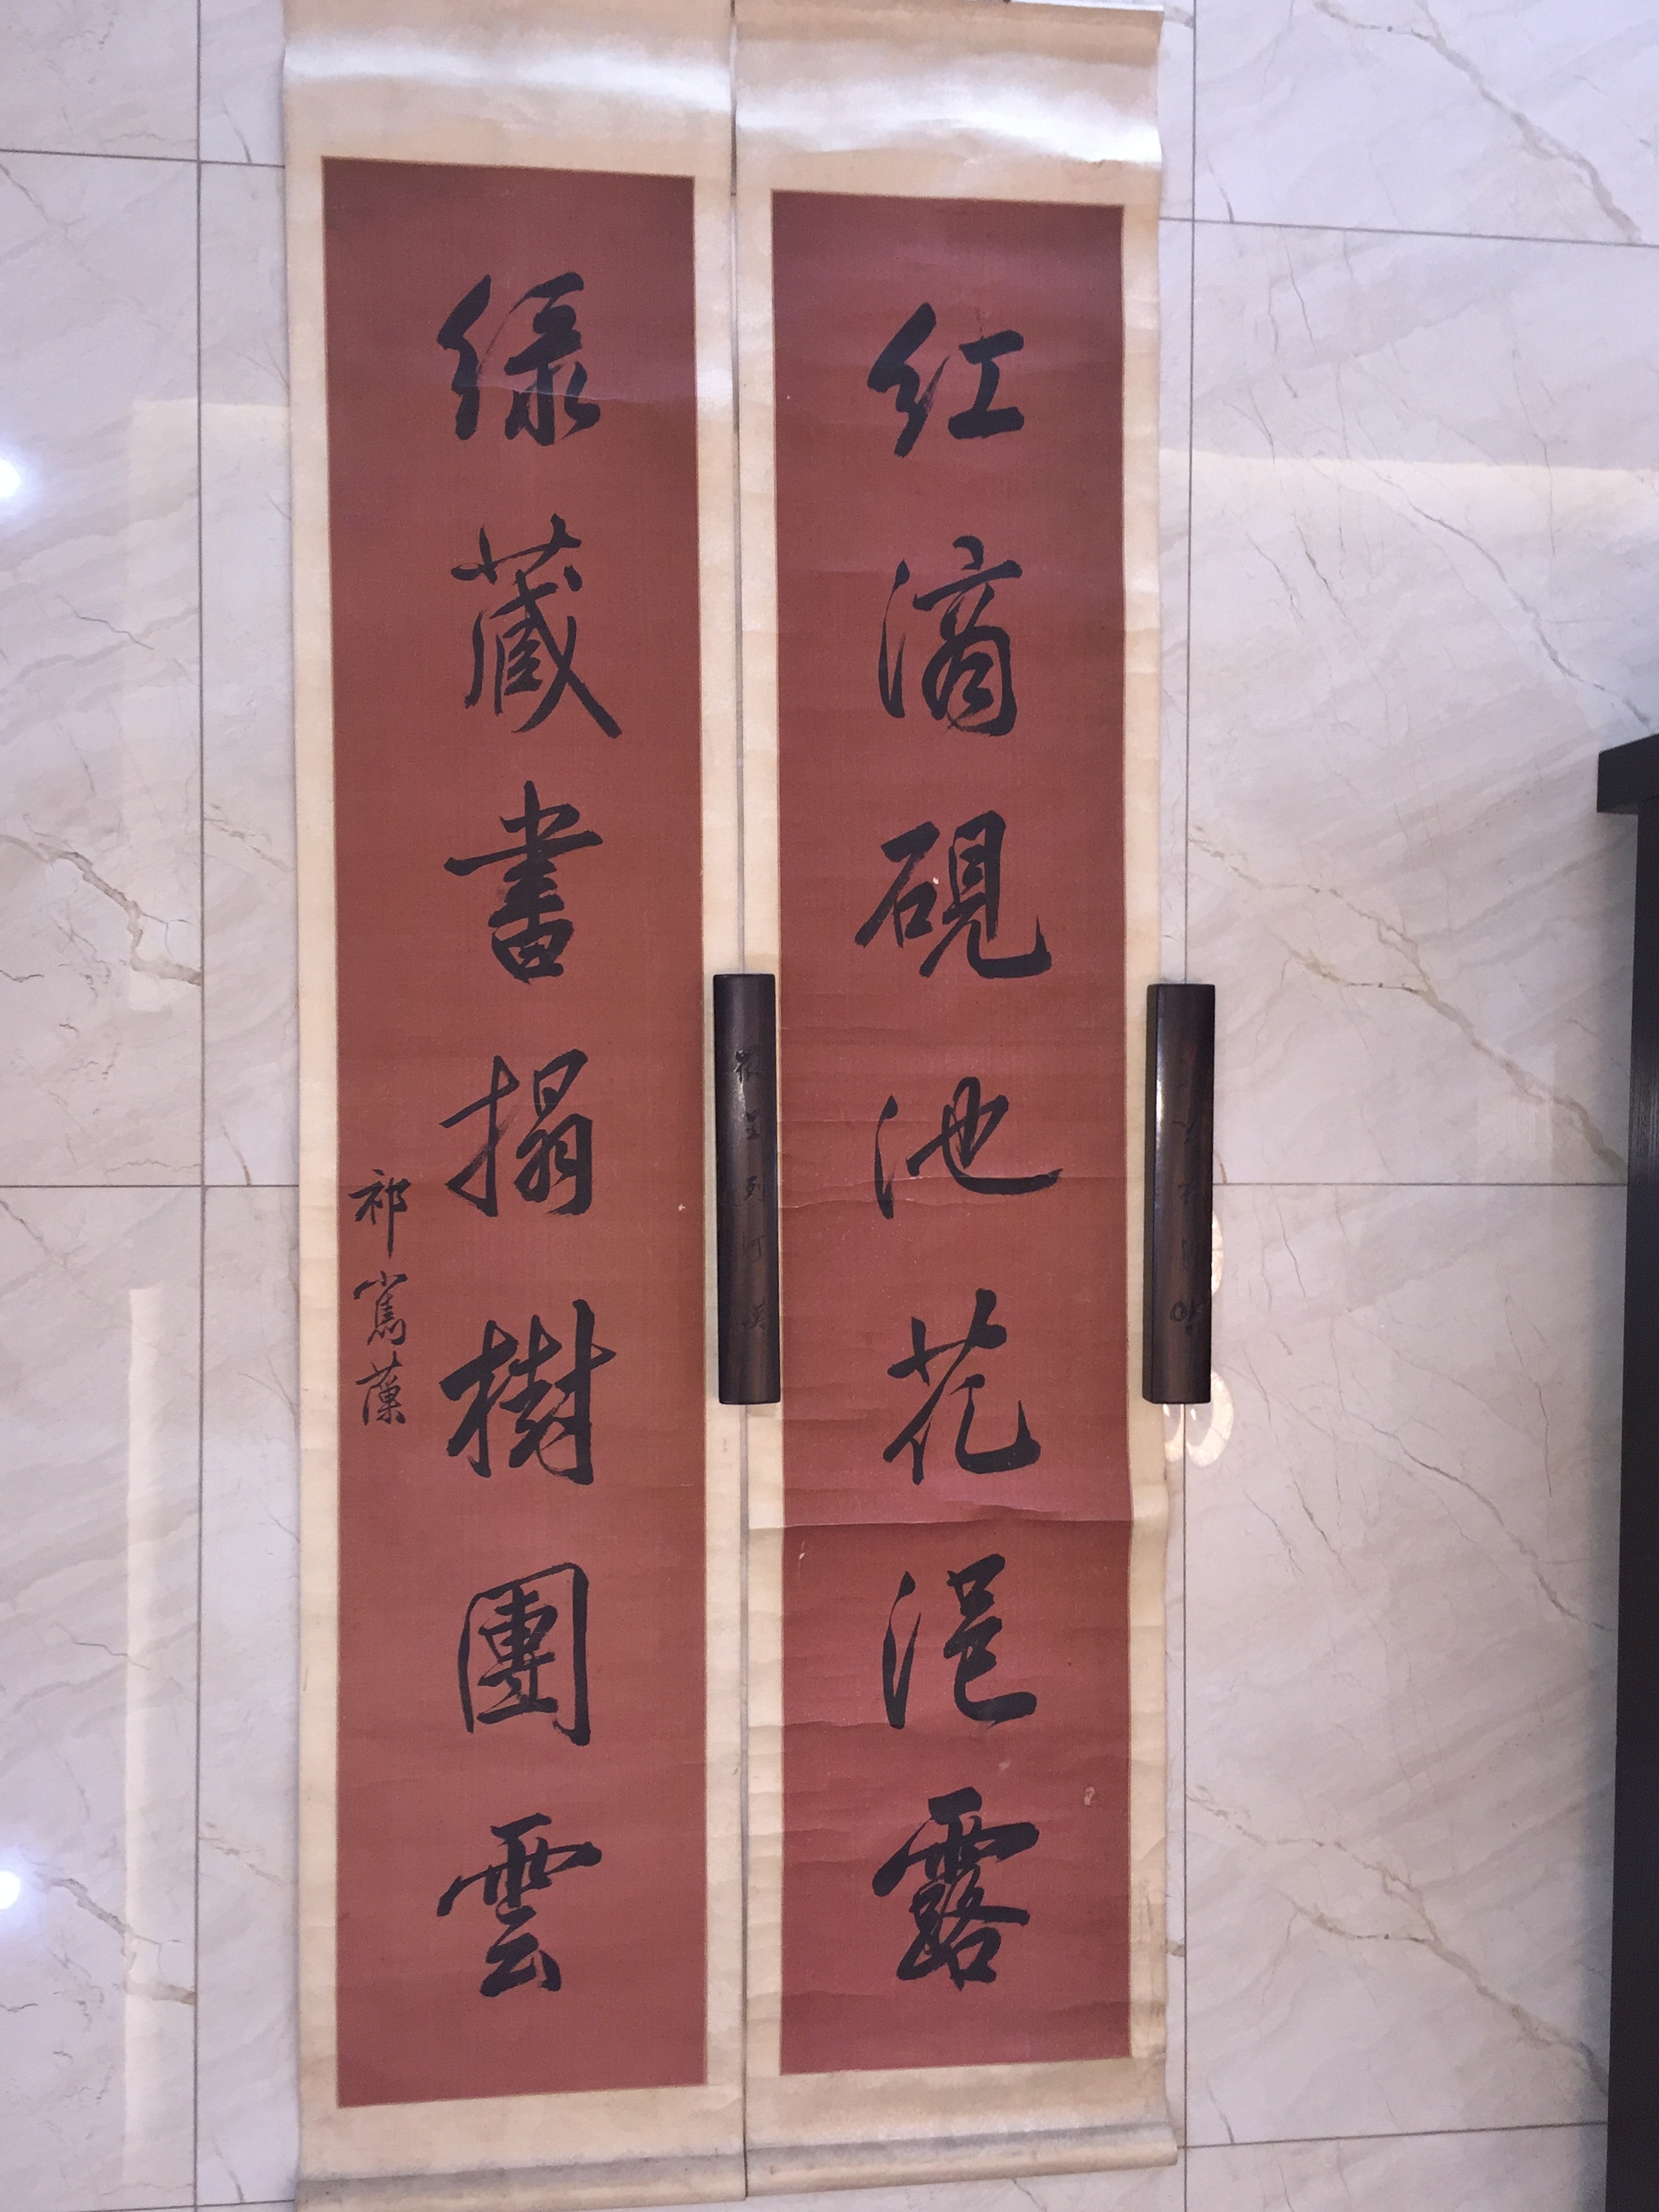 红滴硯池花浥露
緑藏書搨樹團雲
祁寯藻